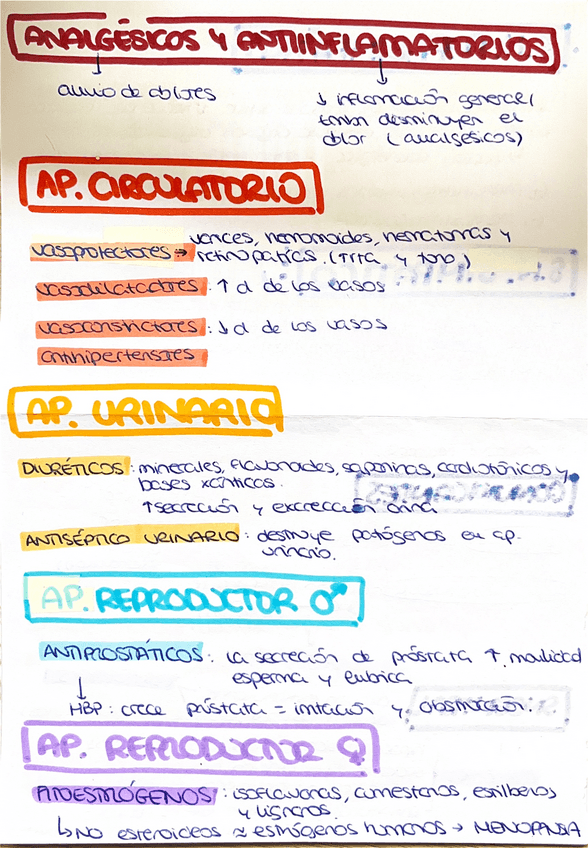 ANALGÉSICOS Y ANTIINFLAMATORIOS
alivio de dolores
↓ inflamación general
tmbn disminuyen el
dolor (analgésicos)
AP. CIRCULATORIO
varices, hemorroides, hematomas y
vasoprotectores → retinopatías. (rrta y tono)
vasodilatadores: ↑ d de los vasos
vasoconstrictores: ↓ d de los vasos
antihipertensores
AP. URINARIO
DIURÉTICOS: minerales, flavonoides, saponinas, cardiotónicos y
bases xánticas.
↑ secreción y excrección orina
ANTISÉPTICO URINARIO: destruye patógenos en ap.
urinario.
AP. REPRODUCTOR ♂
ANTIPROSTÁTICOS: la secreción de próstata ↑ movilidad
esperma y lubrica
↓
HBP: crece próstata = irritación y obstrucción.
AP. REPRODUCTOR ♀
FITOESTRÓGENOS: isoflavonas, cumestanos, estilbenos
y lignanos.
↳ NO esteroideos ≈ estrógenos humanos → MENOPAUSIA